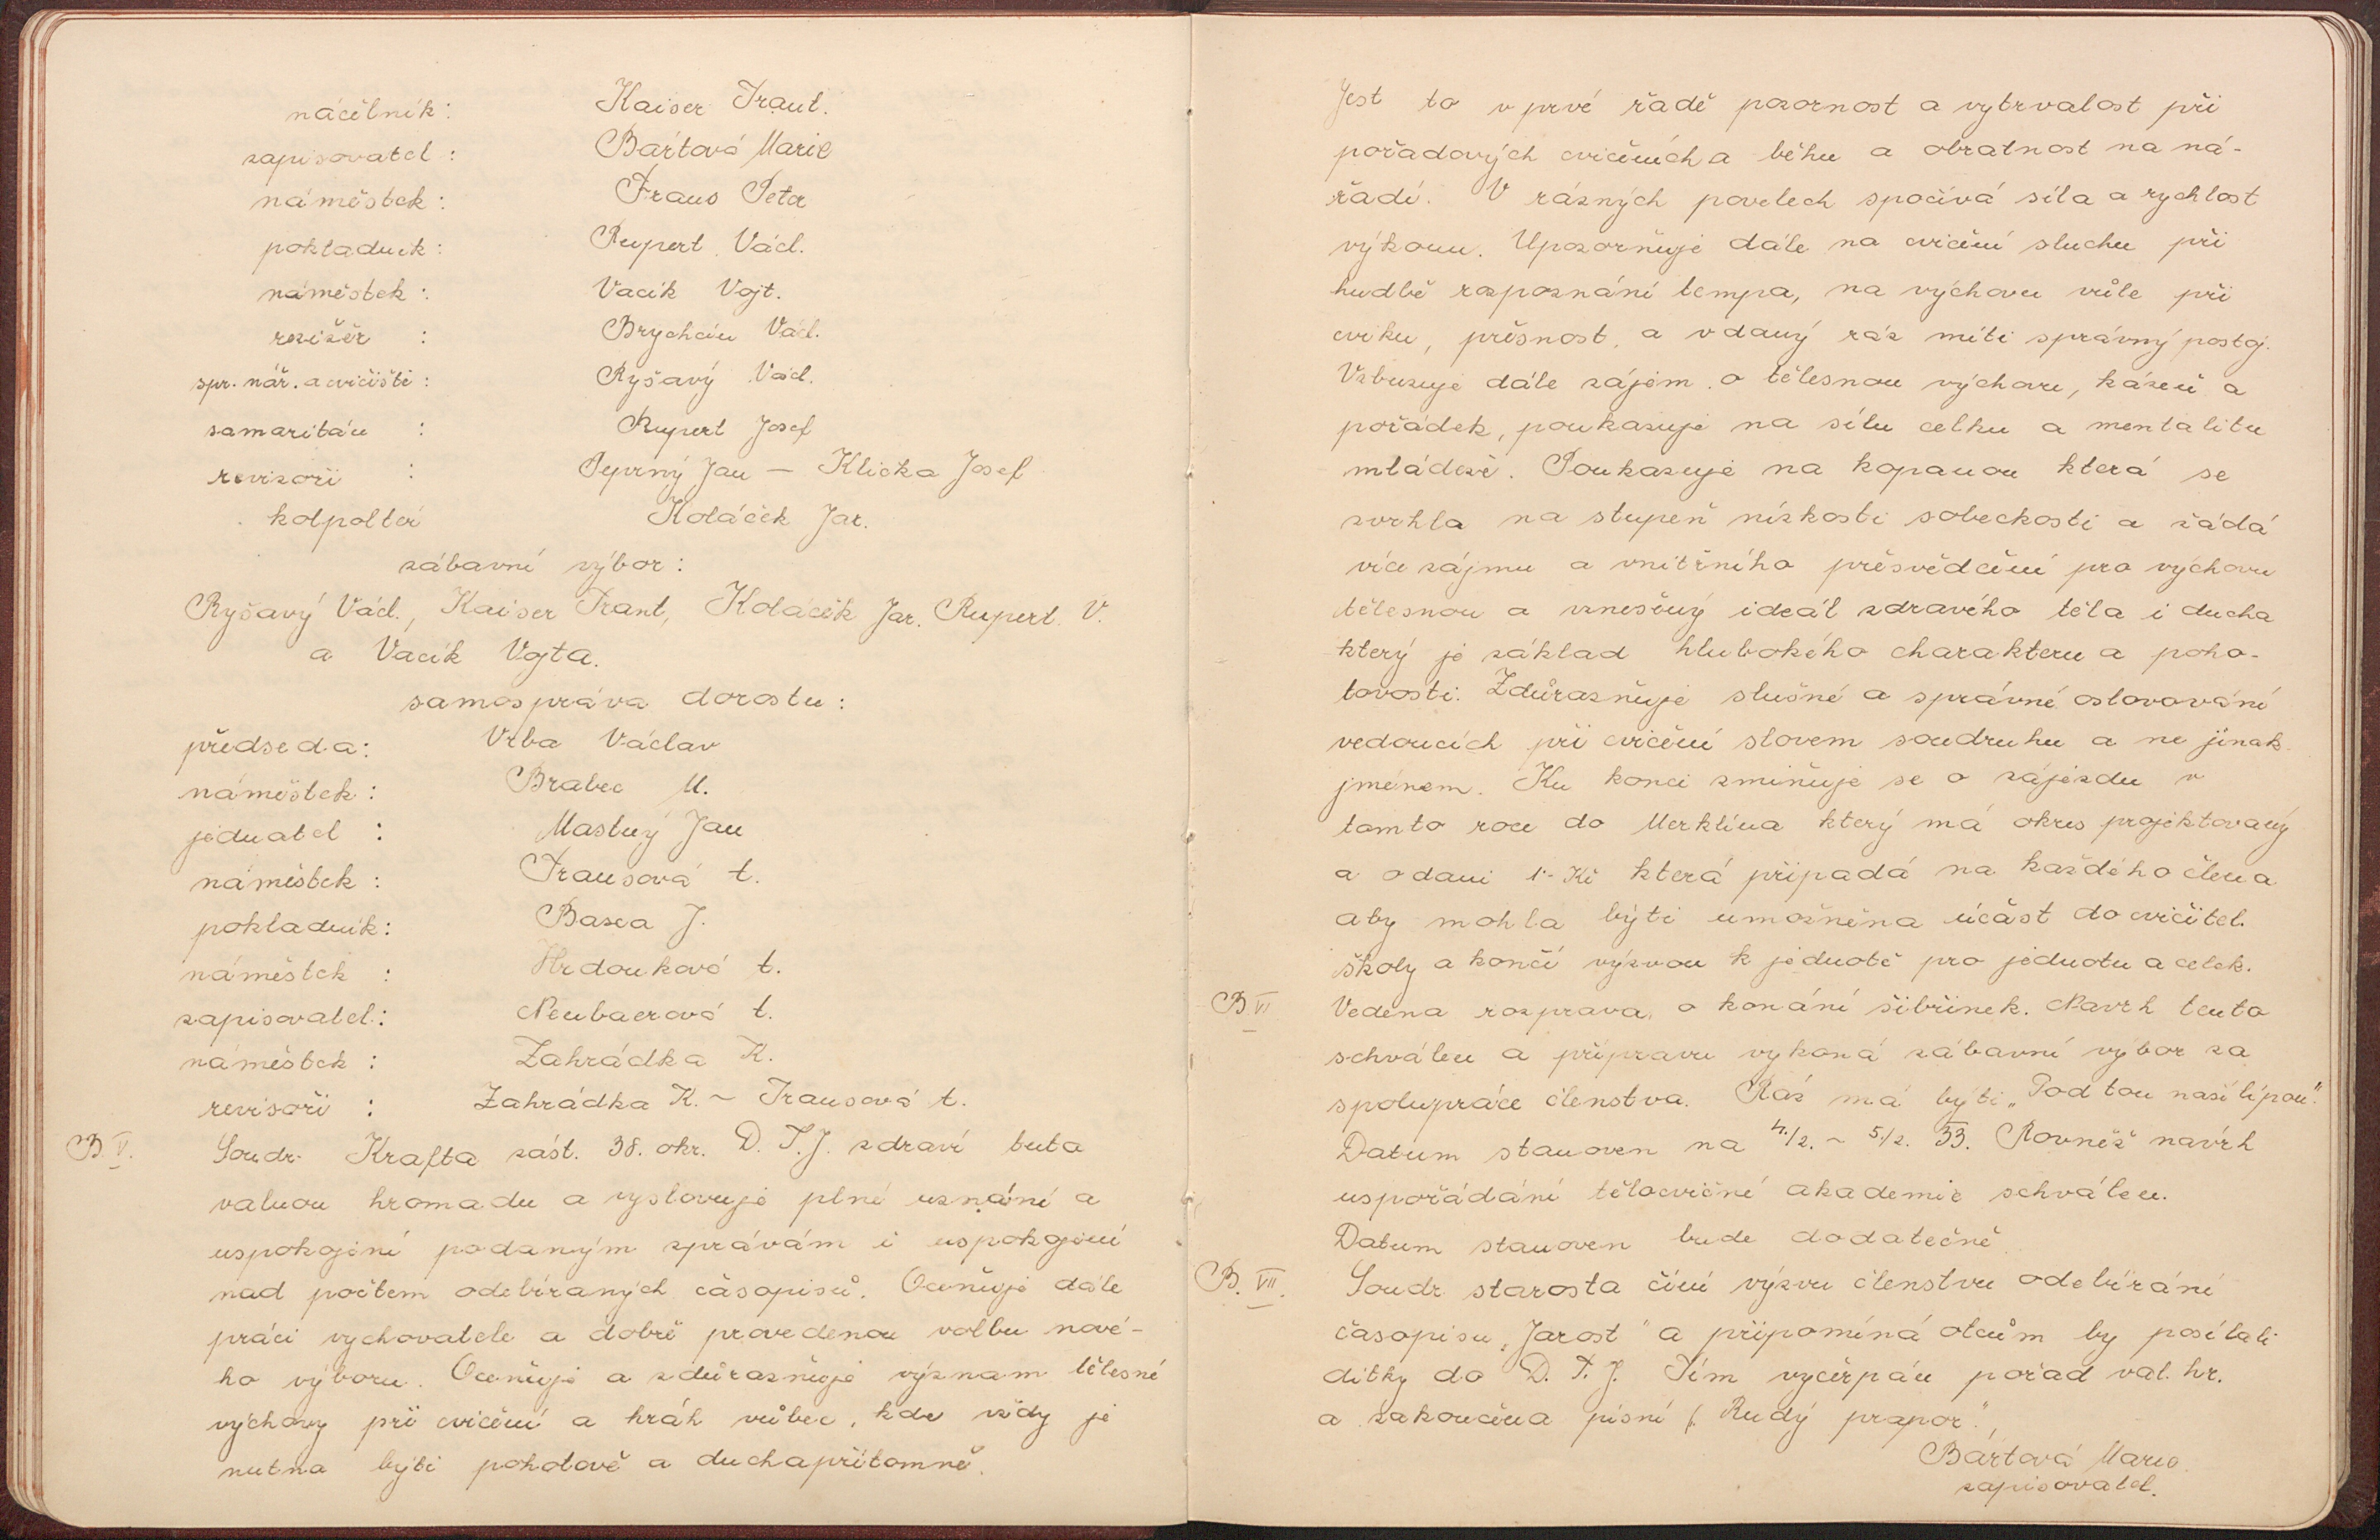 náčelník: Kaiser Traut.
zapisovatel: Bártová Marie
náměstek: Fraus Petr
pokladník: Rupert Václ.
náměstek: Vacík Vojt.
režisér: Brychcín Václ.
spr. nář. a cvičiště: Ryšavý Václ.
samaritán: Rupert Josef
revisoři: Peprný Jan – Klička Josef
kolpoltér Koláček Jar.
zábavní výbor:
Ryšavý Václ., Kaiser Trant, Koláček Jar. Rupert V.
a Vacík Vojta.
samospráva dorostu:
předseda: Vrba Václav
náměstek: Brabec M.
jednatel: Mastný Jan
náměstek: Frausová t.
pokladník: Basea J.
náměstek: Hrdonková t.
zapisovatel: Neubaerová t.
náměstek: Zahrádka K.
revisoři: Zahrádka K. ~ Frausová t.
B. V. Soudr. Krafta zást. 38. okr. D. T. J. zdraví tuto
valnou hromadu a vyslovuje plné uznání a
uspokojení podaným zprávám i uspokojení
nad počtem odebíraných časopisů. Oceňuje dále
práci vychovatele a dobře provedenou volbu nové-
ho výboru. Oceňuje a zdůrazňuje význam tělesné
výchovy při cvičení a hráh vůbec, kde vždy je
nutno býti pohotově a duchapřítomně.
Jest to v prvé řadě pozornost a vytrvalost při
pořadových cvičeních a běhu a obratnost na ná-
řadí. V rázných povelech spočívá síla a rychlost
výkonu. Upozorňuje dále na cvičení sluchu při
hudbě rozpoznání tempa, na výchovu vůle při
cviku, přesnost, a v daný ráz míti správný postoj.
Vzbuzuje dále zájem o tělesnou výchovu, kázeň a
pořádek, poukazuje na sílu celku a mentalitu
mládeže. Poukazuje na kopanou která se
zvrhla na stupeň nízkosti sobeckosti a žádá
více zájmu a vnitřního přesvědčení pro výchovu
tělesnou a vznešený ideál zdravého těla i ducha
který je základ hlubokého charakteru a poho-
tovosti. Zdůrazňuje slušné a správné oslovování
vedoucích při cvičení slovem soudruhu a ne jinak
jménem. Ku konci zmiňuje se o zájezdu v
tomto roce do Merklína který má okres projektovaný
a o dani 1·- Kč která připadá na každého člena
aby mohla býti umožněna účast do cvičitel.
školy a končí výzvou k jednotě pro jednotu a celek.
B. VI. Vedena rozprava o konání šibřinek. Návrh tento
schválen a přípravu vykoná zábavní výbor za
spolupráce členstva. Ráz má býti „Pod tou naší lípou".
Datum stanoven na 4./2. ~ 5./2. 33. Rovněž návrh
uspořádání tělocvičné akademie schválen.
Datum stanoven bude dodatečně.
B. VII. Soudr starosta činí výzvu členstvu odebírání
časopisu „Jarost" a připomíná otcům by posílali
dítky do D. T. J. Tím vyčerpán pořad val. hr.
a zakončena písní „Rudý prapor".
Bártová Marie
zapisovatel.